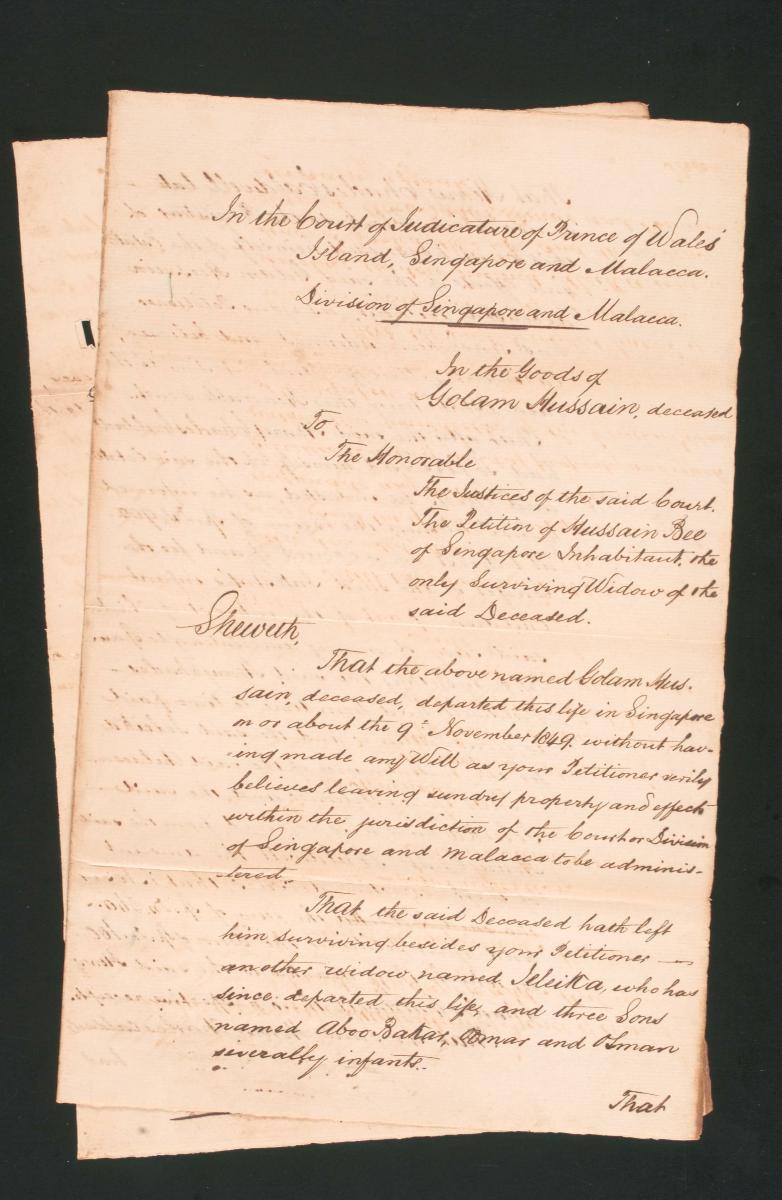 In the Court of Judicature of Prince of Wales'
Island, Singapore and Malacca.
Division of Singapore and Malacca.
In the Goods of
Golam Hussain, deceased
To
The Honorable
The Justices of the said Court.
The Petition of Hussain Bee
of Singapore Inhabitant, the
only Surviving Widow of the
said Deceased.
Sheweth,
That the above named Golam Hus-
sain, deceased, departed this life in Singapore
on or about the 9th November 1849. without hav-
ing made any Will as your Petitioner verily
believes leaving sundry property and effects
within the jurisdiction of the Court or Division
of Singapore and Malacca to be adminis-
tered.
That the said Deceased hath left
him surviving besides your Petitioner —
another widow named , who has
since departed this life, and three Sons
named Aboo Bakar, Omar and Osman
severally infants.
That